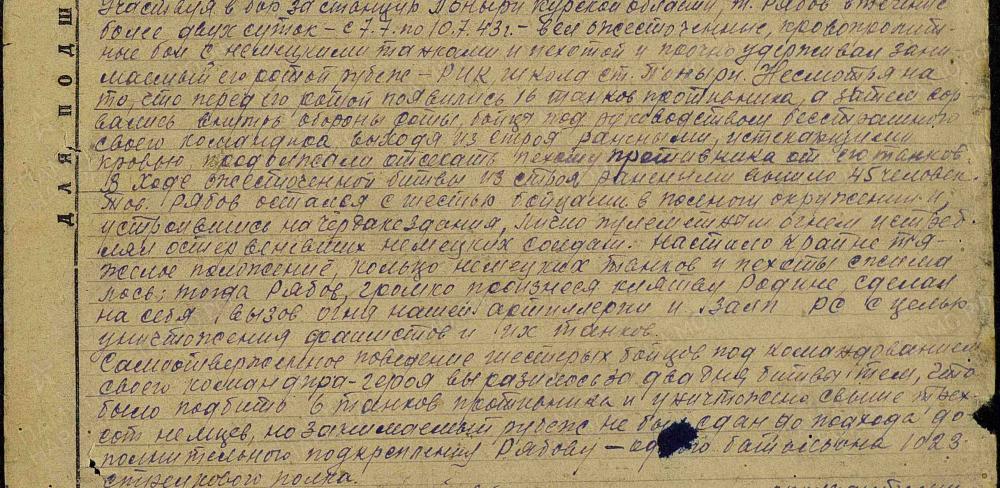 Участвуя в бою за станцию Поныри Курской области, т. Рябов в течение
более двух суток – с 7.7. по 10.7.43 г. – вел ожесточенные, кровопролит-
ные бои с немецкими танками и пехотой и прочно удерживал зани-
маемый его ротой рубеж – РИК, школа ст. Поныри. Несмотря на
то, что перед его ротой появились 16 танков противника, а затем вор
вались внутрь обороны роты, бойцы под руководством бесстрашного
своего командира, выходя из строя ранеными, истекающими
кровью, продолжали отсекать пехоту противника от его танков.
В ходе ожесточенной битвы из строя ранеными вышло 45 человек.
Тов. Рябов остался с шестью бойцами в полном окружении и,
устроившись на чердаке здания, лично пулеметным огнем истреб-
лял остервеневших немецких солдат. Настало крайне тя-
желое положение, кольцо немецких танков и пехоты сжима
лось; тогда Рябов, громко произнеся клятву Родине, сделал
на себя вызов огня нашей артиллерии и залп РС с целью
уничтожения фашистов и их танков.
Самоотверженное поведение шестерых бойцов под командованием
своего командира-героя выказилось за два дня битвы тем, что
было подбито 6 танков противника и уничтожено свыше трех-
сот немцев, но занимаемый рубеж не был сдан до подхода до
полнительного подкрепления Рябову – одного батальона 1023
стрелкового полка.
ДЛЯ, ПОДШ